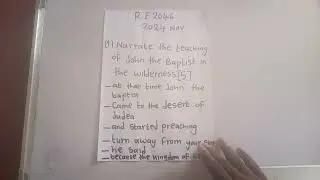 R.E 2046
2024 Nov
(1) Narrate the teaching
of John the Baptist in
the wilderness [5]
— at that time John the
baptist
— Came to the desert of
Judea
— and started preaching
— turn away from your
— he said
— because the kingdom of